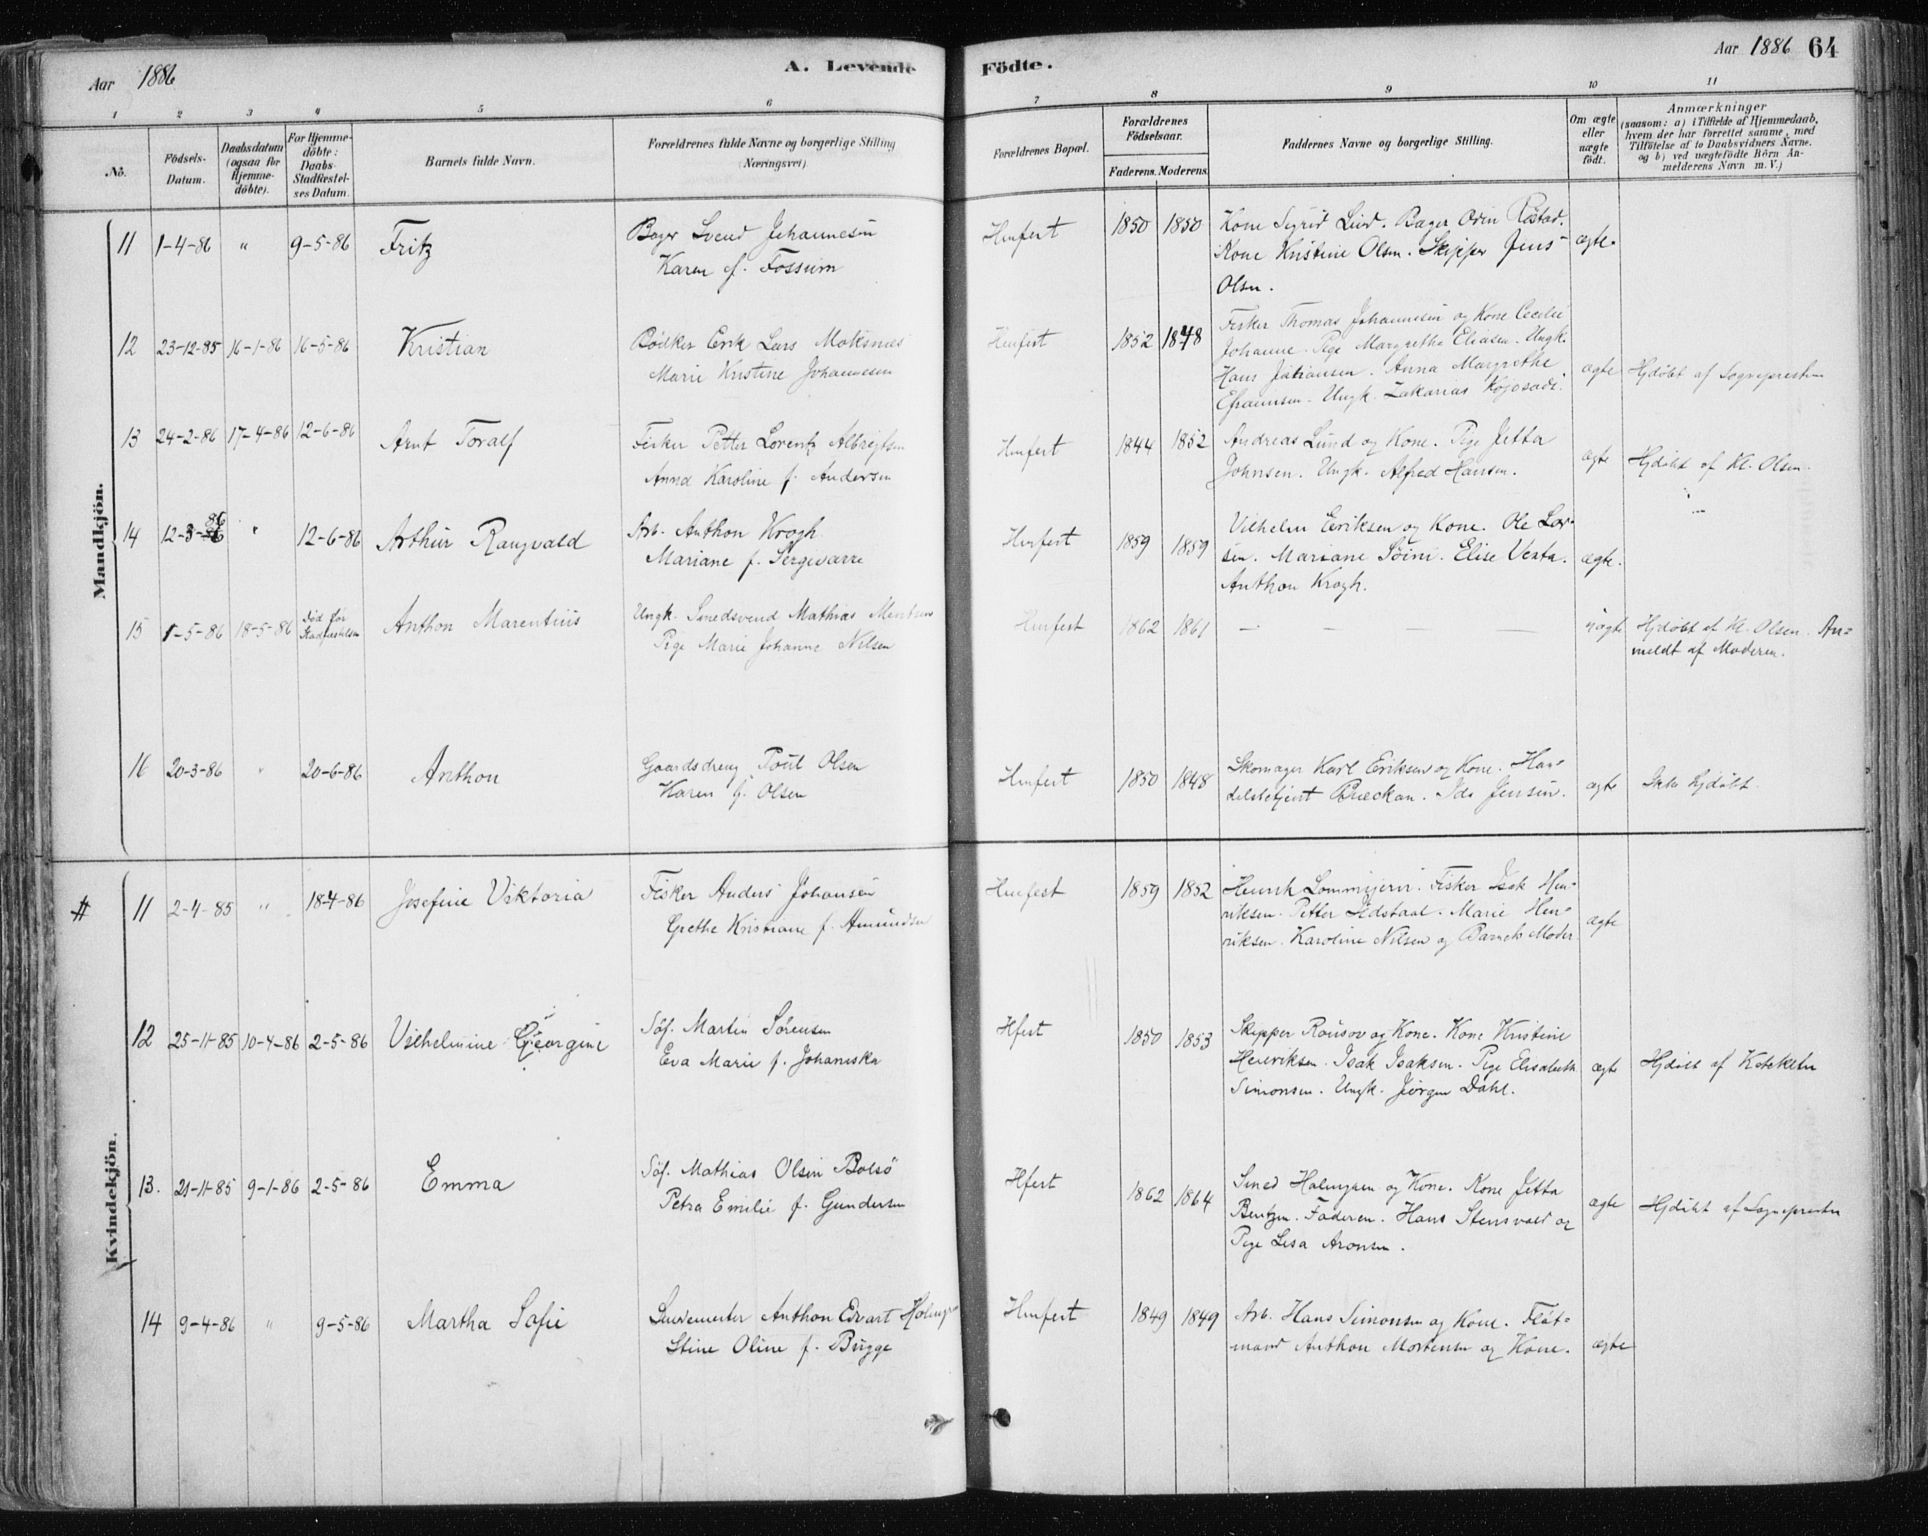 Aar 1886
A. Levende
Födte.
Aar 1886 64
1 2 3 4 5 6 7 8 9 10 11
No.
Födsels-
Datum.
Daabsdatum
(ogsaa for
Hjemme-
döbte).
For Hjemme-
döbte:
Daabs-
Stadfæstel-
ses Datum.
Barnets fulde Navn.
Forældrenes fulde Navne og borgerlige Stilling
(Næringsvei).
Forældrenes Bopæl.
Forældrenes
Födselsaar.
Faderens. Moderens.
Faddernes Navne og borgerlige Stilling.
Om ægte
eller
uægte
födt.
Anmærkninger
(saasom: a) i Tilfælde af Hjemmedaab,
hvem der har forrettet samme, med
Tilföielse af to Daabsvidners Navne.
og b) ved uægtefödte Börn An-
melderens Navn m. V.)
Mandkjön.
11 1-4-86 " 9-5-86 Fritz
Bager Svend Johannesen
Karen f. Fossum
Hmfest 1850 1850
Kone Sigrid Lund. Bager Odin Röstad.
Kone Kristine Olsen. Skipper Jens
Olsen.
ægte
12 23-12-85 16-1-86 16-5-86 Kristian
Bödker Erik Lars Moksnes
Marie Kristine Johannesen
Hmfest 1852 1848
Fisker Thomas Johannesen og Kone Cecilie
Johanne. Pige Margrethe Eliasen. Ungk.
Hans Johansen. Anna Margrethe
Efraimsen. Ungk. Zakarias
ægte Hjdöbt af Sognepresten
13 24-2-86 17-4-86 12-6-86 Arnt Toralf
Fisker Petter Lorentz Albrigtsen
Anna Karoline f. Andersen
Hmfest 1844 1852
Andreas Lund og Kone. Pige Jetta
Johnsen. Ungk. Alfred Hansen.
ægte Hjdöbt af Kl. Olsen.
14 12-3-86 " 12-6-86 Arthur Rangvald
Arb. Anthon Krogh
Mariane f. Sergevarre
Hmfest 1859 1859
Vilhelm Eriksen og Kone. Ole Lor-
sen. Mariane Söini. Elise Verta.
Anthon Krogh.
ægte.
15 1-5-86 18-5-86 Död för
Stadfæstelsen
Anthon Marentius
Ungk. Smedsvend Mathias
Pige Marie Johanne Nilsen
Hmfest 1862 1861 — — — —
uægte Hjdöbt af Kl. Olsen. An-
meldt af Moderen.
16 20-3-86 " 20-6-86 Anthon
Gaardsdreng Poul Olsen
Karen f. Olsen
Hmfest 1850 1848
Skomager Karl Eriksen og Kone. Han-
delsbetjent Breckan. Ida Jensen.
ægte Ikke hjdöbt.
Kvindekjön.
# 11 2-4-85 " 18-4-86 Josefine Viktoria
Fisker Anders Johansen
Grethe Kristiane f. Amundsen
Hmfest 1859 1852
Henrik Lommijervi. Fisker Isak Hen-
riksen. Petter Idstaal. Marie Hen-
riksen. Karoline Nilsen og Barnets Moder
ægte
12 25-11-85 10-4-86 2-5-86 Vilhelmine Georgine
Söf. Martin Sörensen
Eva Marie f. Johaniska
Hfest 1850 1853
Skipper Rousov og Kone. Kone Kristine
Henriksen. Isak Isaksen. Pige Elisabeth
Simonsen. Ungk. Jörgen Dahl.
ægte Hjdöbt af Kateketen
13. 21-11-85 9-1-86 2-5-86 Emma
Söf. Mathias Olsen Bolsö
Petra Emilie f. Gundersen
Hfest 1862 1864
Smed Holmgren og Kone. Kone Jetta
Bentzen. Faderen. Hans Stensvold og
Pige Lisa Aronsen.
ægte Hjdöbt af Sognepresten
14 9-4-86 " 9-5-86 Martha Sofie
Smedemester Anthon Edvart Holmgren
Stine Oline f. Bugge
Hmfest 1849 1849
Arb. Hans Simonsen og Kone. Flöt-
mand Anthon Mortensen og Kone.
ægte